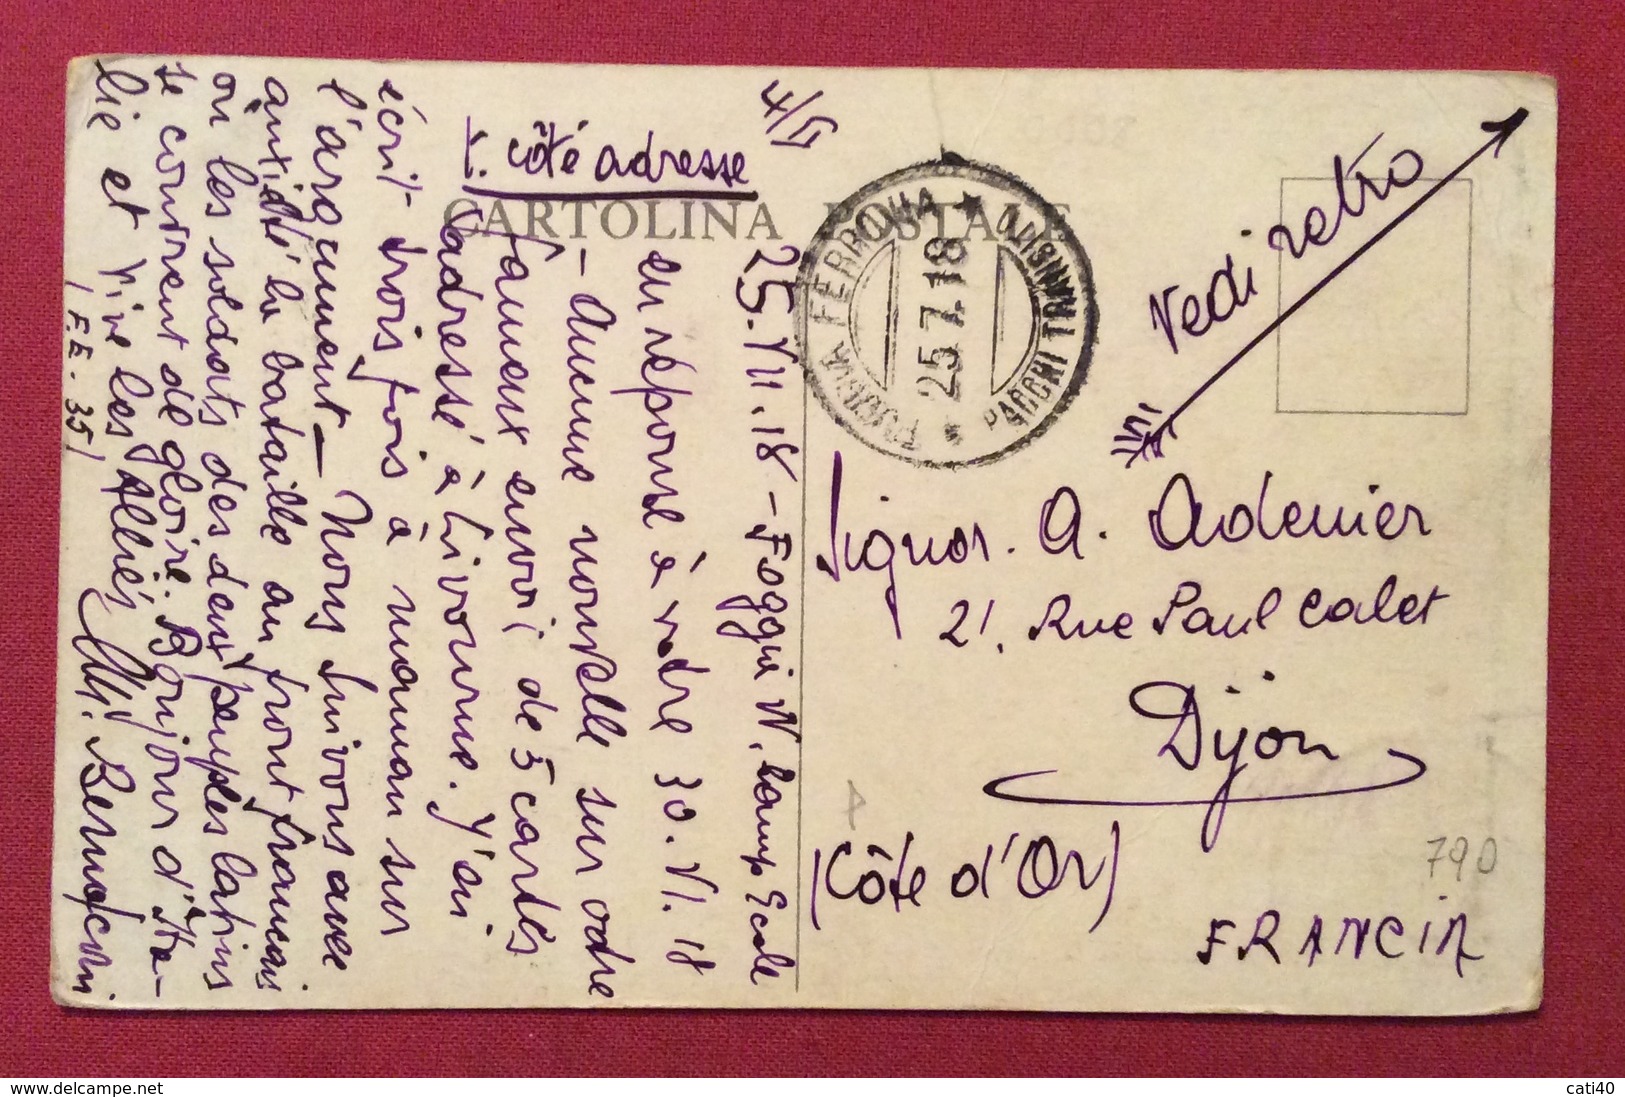 4/5
T. côté adresse
CARTOLINA POSTALE
25.VII.18 - Foggia N. Camp Ecole
en réponse à votre 30.VI.18
- Aucune nouvelle sur votre
fameux envoi de 5 cartes
adressé à Livourne. J'ai
écrit trois fois à maman sur
l'argument - Nous suivons avec
la bataille au front français
où les soldats des deux peuples latins
se couvrent de gloire. Bonjour d'Ita-
lie et vive les Alliés
(F.E. 35)
FOGGIA FERROVIA
PACCHI TRANSITO
25.7.18
Vedi retro
Signor. A. Audenier
21, Rue Paul Cabet
Dijon
(Côte d'Or)
FRANCIA
790
delcampe.net
cati40